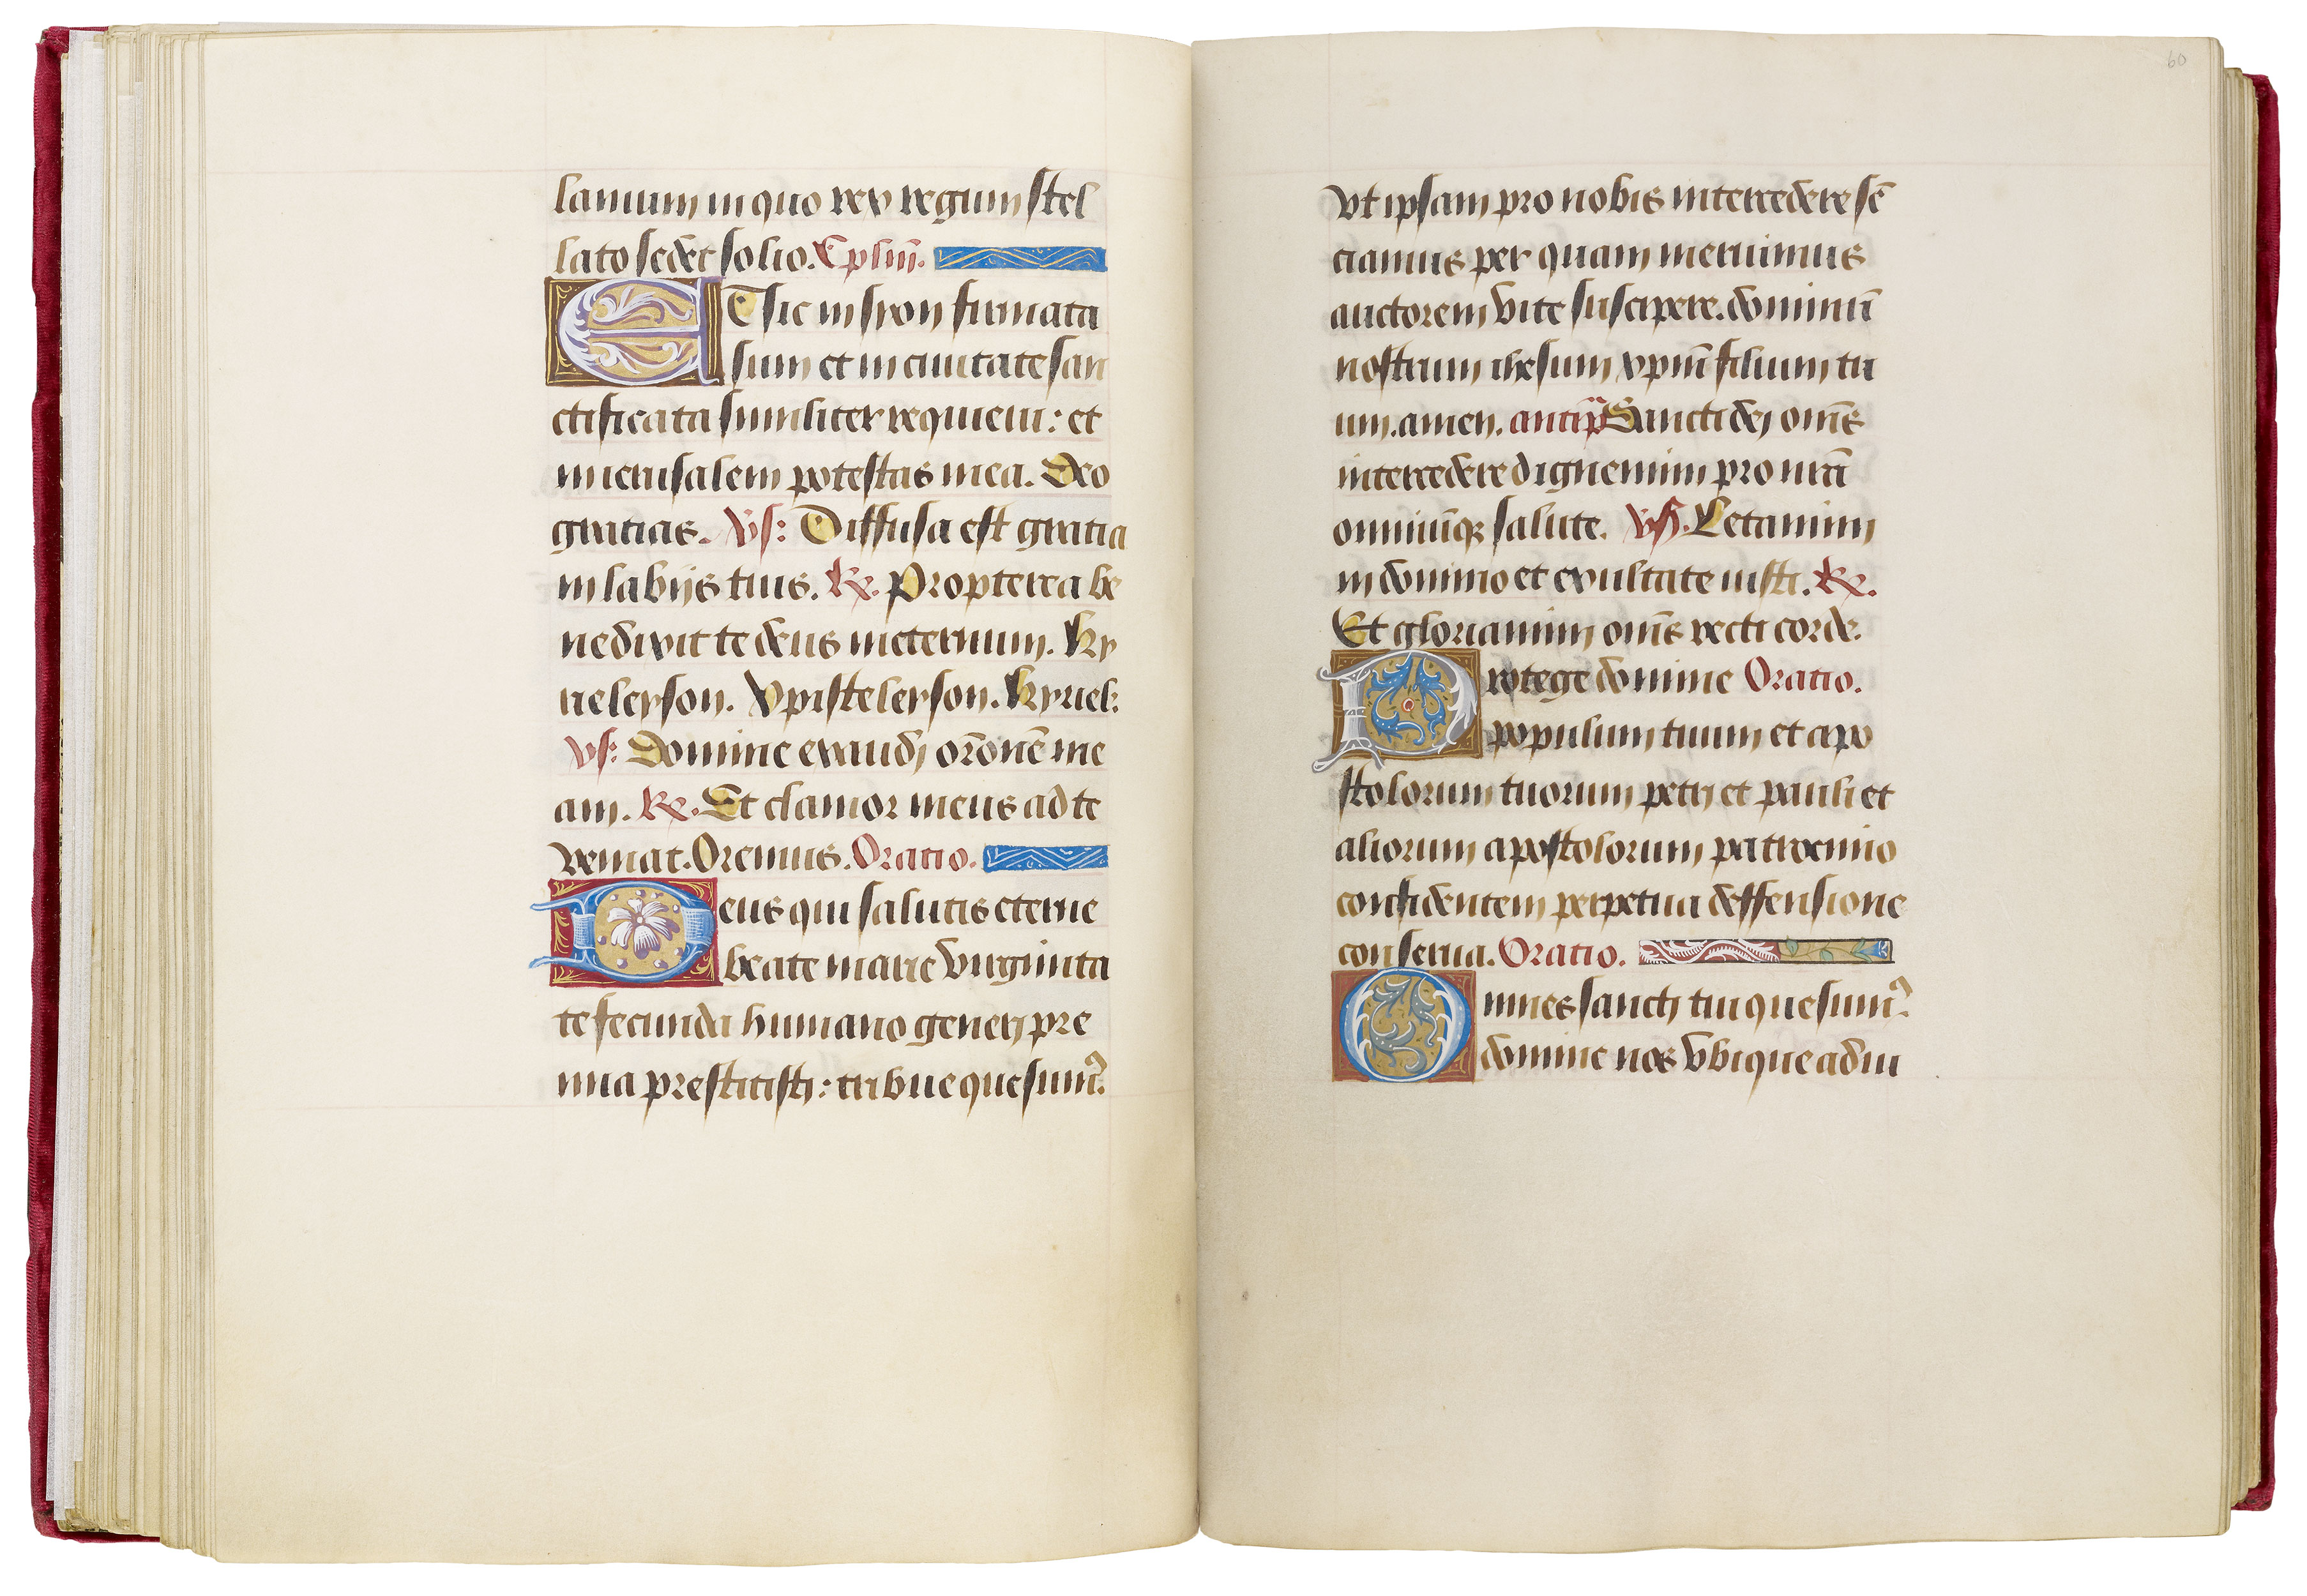 lamum in quo rex regum stel
lato sedet solio. Cplm̄.
ET sic in syon firmata
sum et in ciuitate san
ctificata similiter requieui: et
in ierusalem potestas mea. Deo
gratias. vs: Diffusa est gratia
in labijs tuis. ℞. Propterea be
nedixit te deus in eternum. ky
rieleyson. Xpisteleyson. kyriel:
vs: Domine exaudi or̄onē me
am. ℞. Et clamor meus ad te
veniat. Oremus. Oratio.
Deus qui salutis eterne
beate marie virginita
te fecunda humano generi pre
mia prestitisti: tribue quesum9.
60
vt ipsam pro nobis intercedere sē
ciamus per quam meruimus
auctorem vite suscipere. dominū
nostrum ihesum xpm̄ filium tu
um. amen. antip̄ Sancti dei om̄s
intercedere dignemini pro nr̄a
omniūqꝫ salute. vs. Letamini
in domino et exultate iusti. ℞.
Et gloriamini om̄s recti corde.
Protege domine Oratio.
populum tuum et apo
stolorum tuorum petri et pauli et
aliorum apostolorum patrocinio
confidentem perpetua deffensione
conserua. Oratio.
Omnes sancti tui quesum9.
domine nos vbique adiu